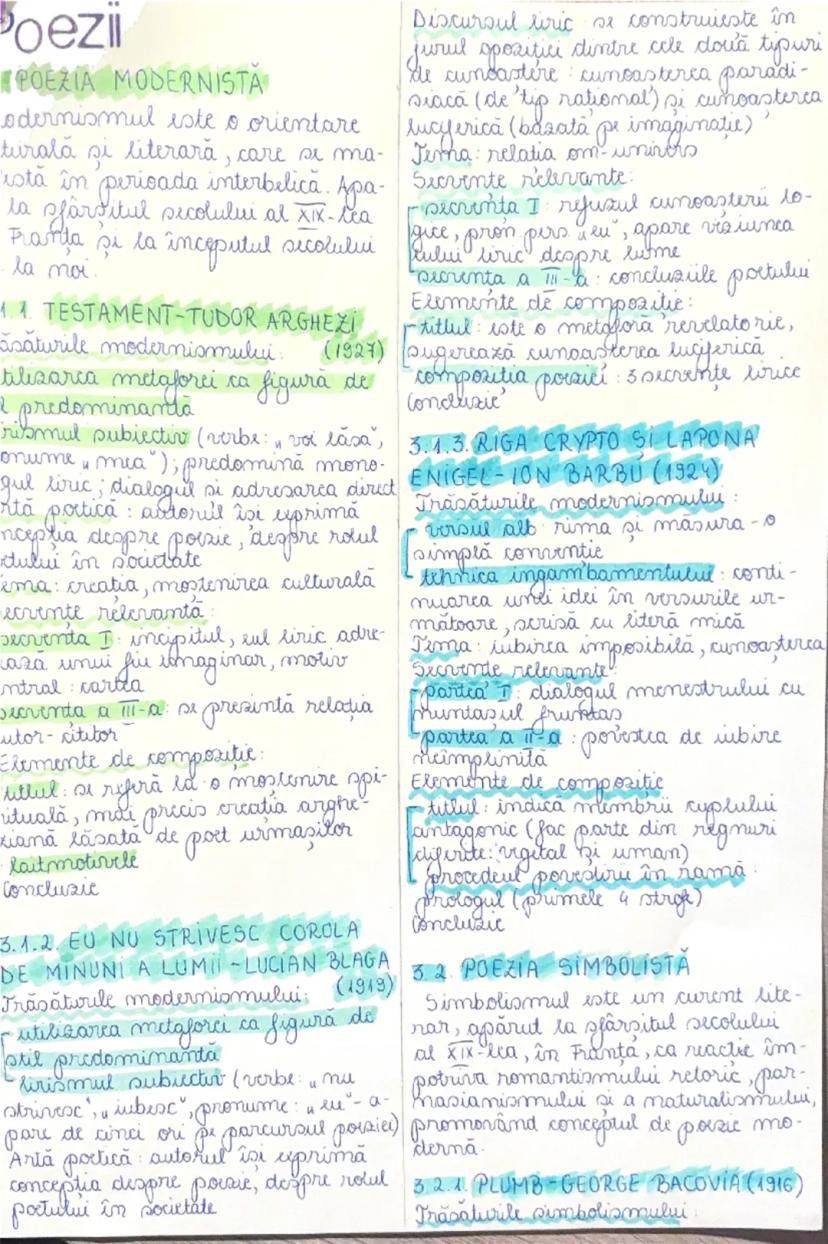 Poezii
POEZIA MODERNISTĂ
odernismul este o orientare
turală și literară, care se ma-
istă în perioada interbelică. Apa-
la sfârșitul secolului al XIX-lea
Franța și la începutul secolului
la noi.
1.1. TESTAMENT-TUDOR ARGHEZI
ăsăturile modernismului: (1927)
tilizarea metaforei ca figură de
l predominantă
rismul subiectiv (verbe: „voi lăsa",
onume „mea"); predomină mono-
gul liric; dialogul si adresarea direct
rtă poetică: autorul își exprimă
ncepția despre poezie, despre rolul
etului în societate
ema: creația, moștenirea culturală
ecvențe relevantă:
secvența I: incipitul, eul liric adre-
ează unui fiu imaginar, motiv
ntral: cartea
secvența a III-a: se prezintă relația
utor-cititor
Elemente de compoziție:
titlul: se referă la o moștenire spi-
rituală, mai precis creația arghe-
ziană lăsată de poet urmașilor
laitmotivele
Concluzie
3.1.2. EU NU STRIVESC COROLA
DE MINUNI A LUMII-LUCIAN BLAGA
Trăsăturile modernismului: (1919)
utilizarea metaforei ca figură de
stil predominantă
lirismul subiectiv (verbe: „nu
strivesc", „iubesc", pronume: „eu"-a-
pare de cinci ori pe parcursul poeziei)
Artă poetică: autorul își exprimă
concepția despre poezie, despre rolul
poetului în societate
Discursul liric se construiește în
jurul opoziției dintre cele două tipuri
de cunoaștere: cunoașterea paradi-
siacă (de tip rațional) și cunoașterea
luciferică (bazată pe imaginație)
Tema: relația om-univers
Secvențe relevante:
secvența I: refuzul cunoașterii lo-
gice, pron. pers. „eu", apare viziunea
eului liric despre lume
secvența a III-a: concluziile poetului
Elemente de compoziție:
titlul: este o metaforă revelatorie,
sugerează cunoașterea luciferică
compoziția poeziei: 3 secvențe lirice
Concluzie
3.1.3. RIGA CRYPTO ȘI LAPONA
ENIGEL-ION BARBU (1924)
Trăsăturile modernismului:
versul alb rima și măsura-o
simplă convenție
tehnica ingambamentului: conti-
nuarea unei idei în versurile ur-
mătoare, scrisă cu literă mică
Tema: iubirea imposibilă, cunoașterea
Secvențe relevante:
partea I: dialogul menestrului cu
nuntașul fruntaș
partea a II-a: povestea de iubire
neîmplinită
Elemente de compoziție
titlul: indică membrii cuplului
antagonic (fac parte din regnuri
diferite: vegetal și uman)
procedeul povestirii în ramă:
prologul (primele 4 strofe)
Concluzie
3.2. POEZIA SIMBOLISTĂ
Simbolismul este un curent lite-
rar, apărut la sfârșitul secolului
al XIX-lea, în Franța, ca reacție îm-
potriva romantismului retoric, par-
nasianismului si a naturalismului,
promovând conceptul de poezie mo-
dernă.
3.2.1. PLUMB-GEORGE BACOVIA (1916)
Trăsăturile simbolismului: